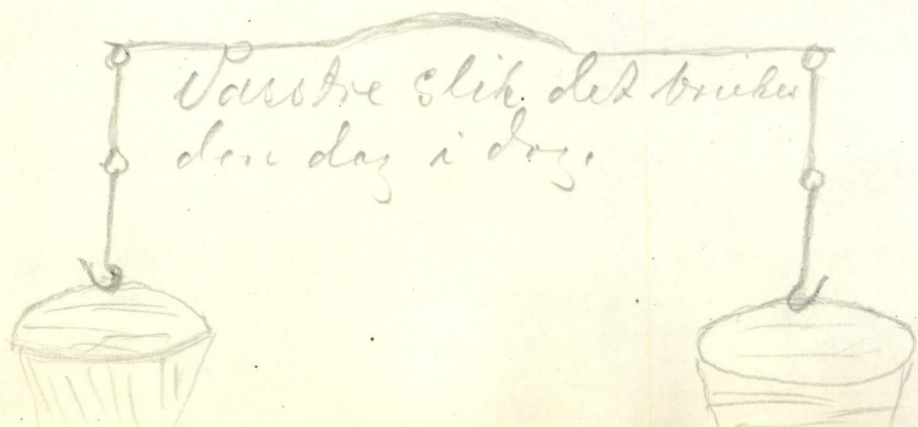 Vasstre slik det brukes
den dag i dag.